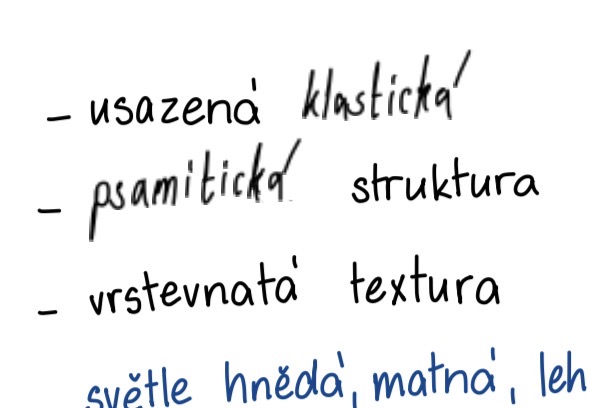 - usazená klastická
- psamitická struktura
- vrstevnatá textura
světle hnědá, matná, leh